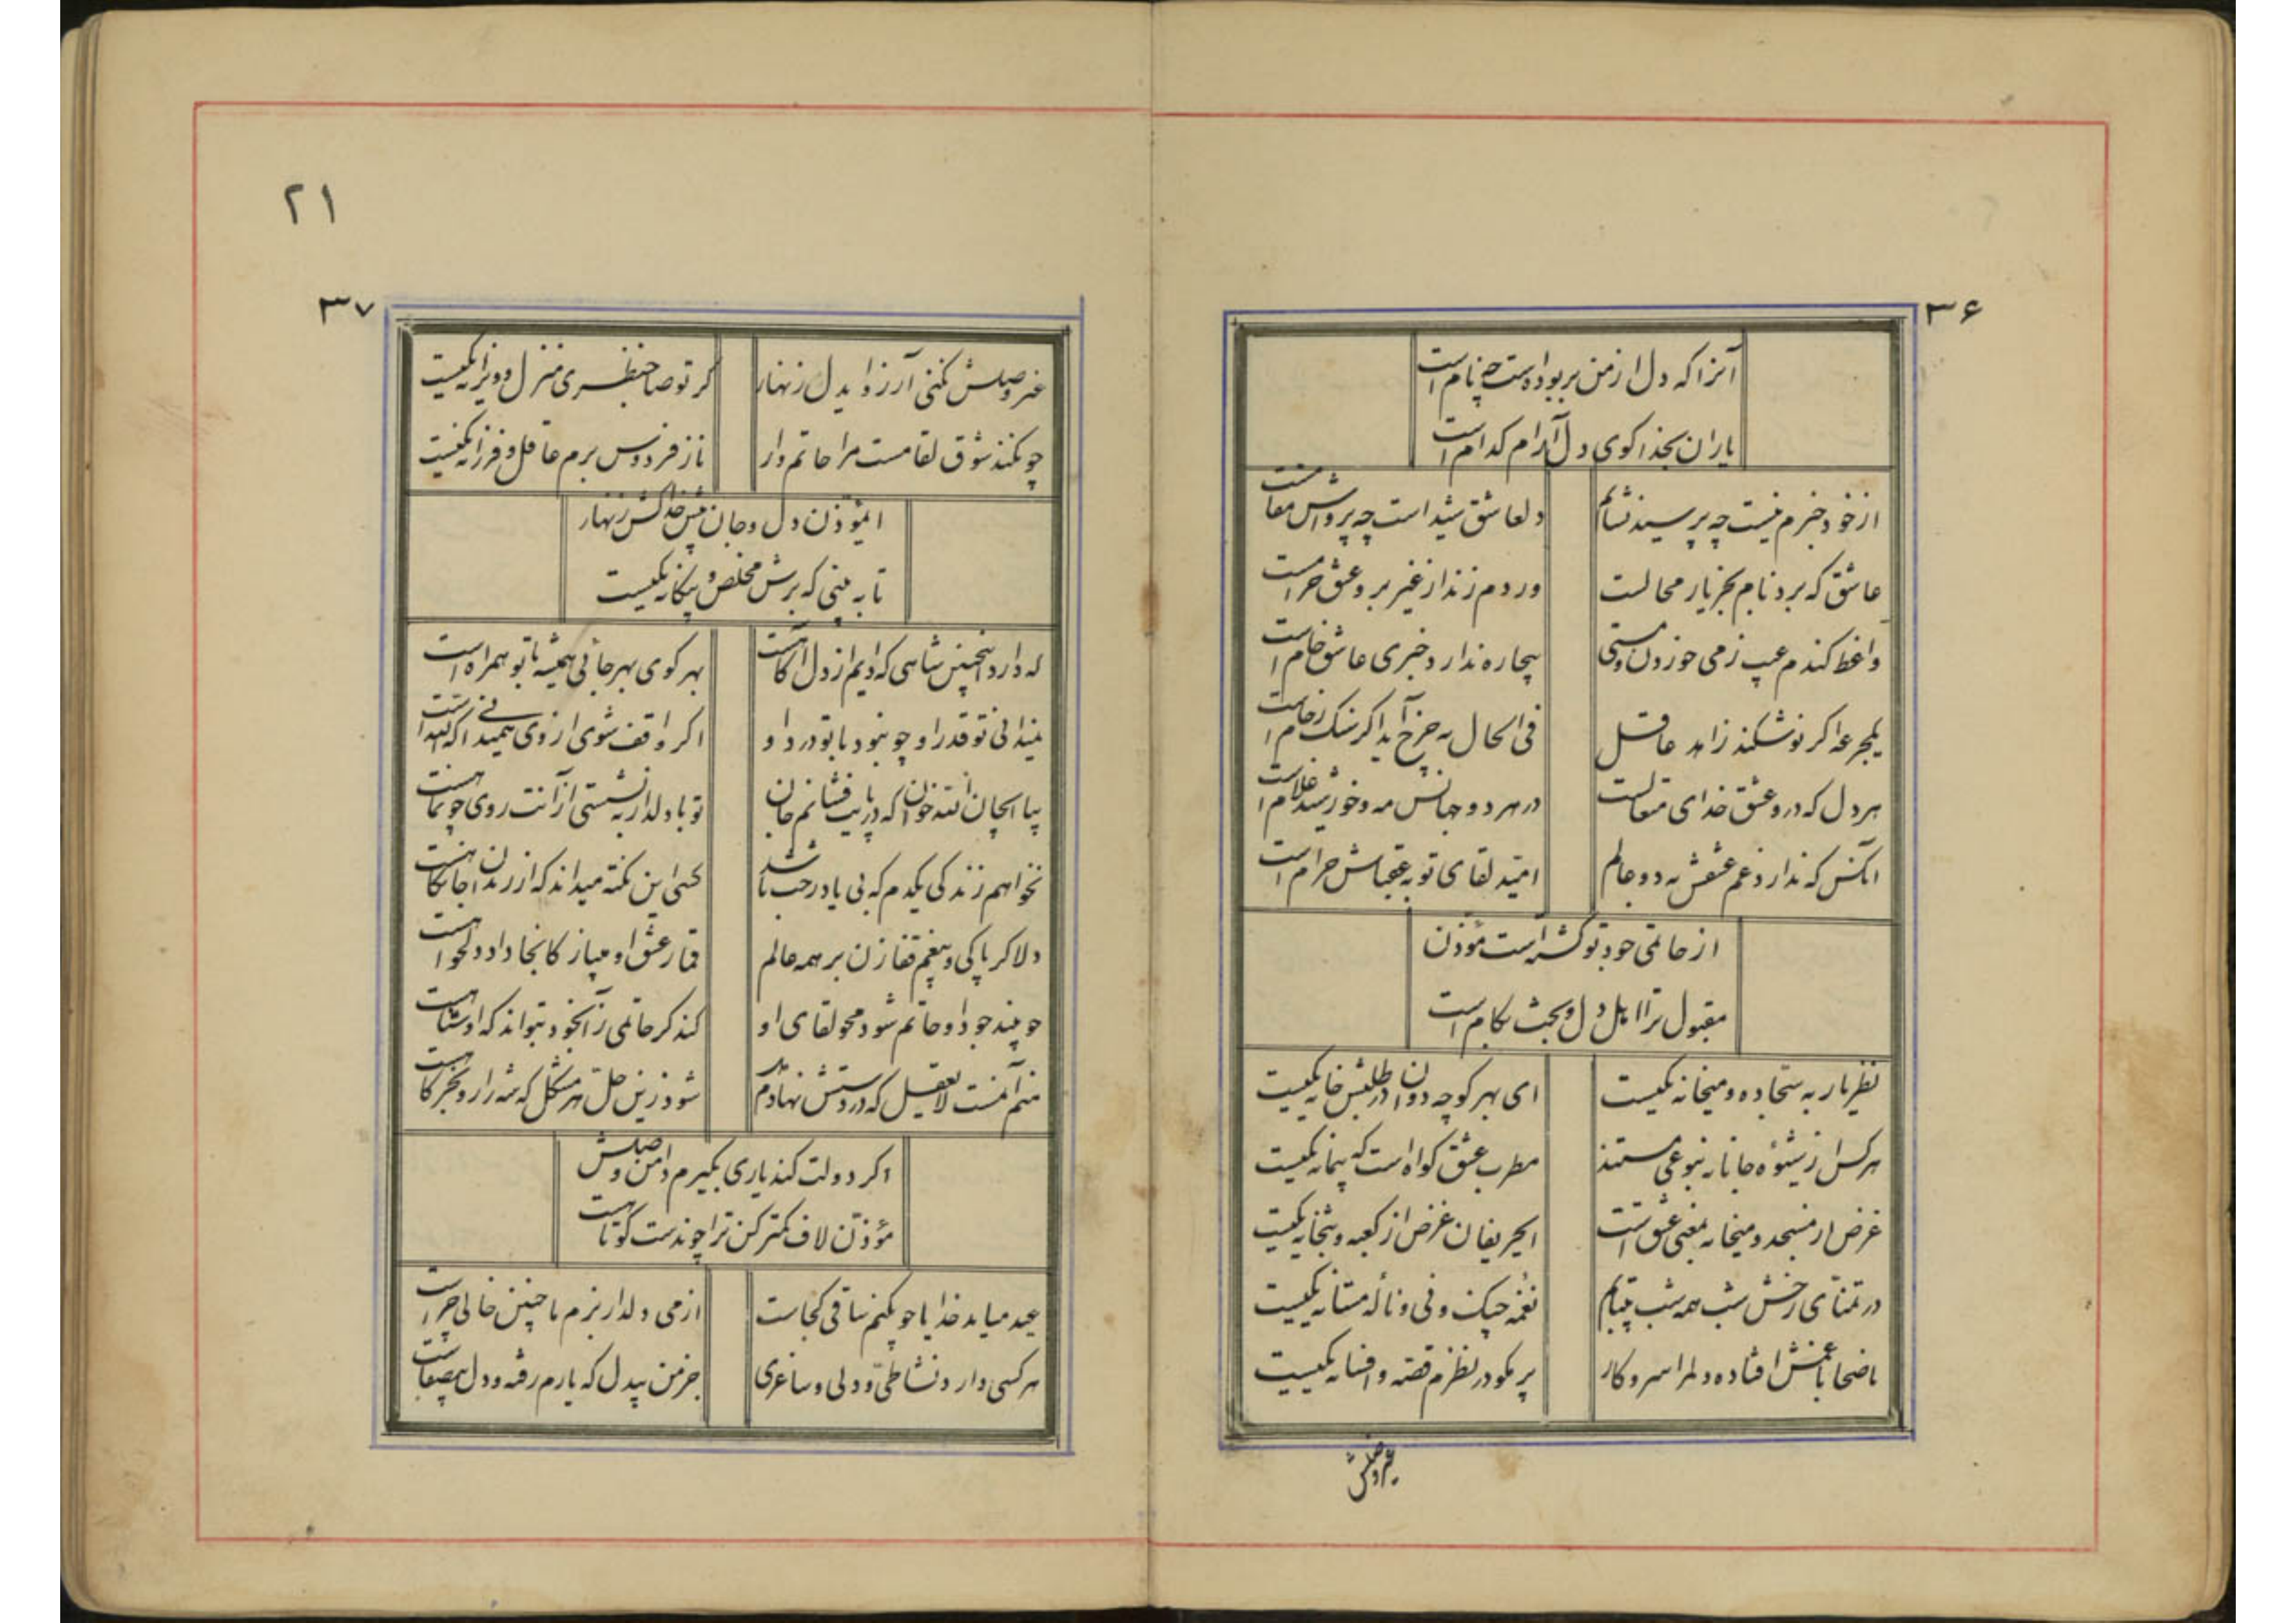 ۳۶
آنرا که دل از من بربوداست چه نام است
یاران بخدا کوی دل آرام کدام است
از خود خبرم نیست چه پرسید نشانم
دلعاشق شیداست چه پرواش مقامست
عاشق که برد نام بجز یار محالست
ور دم زند از غیر برو عشق حرامست
واعظ کندم عیب ز می خوردن و مستی
بیچاره ندارد خبری عاشق خام است
یکجرعه اگر نوشکند زاهد عاقل
فی الحال به چرخ آید اگر سنک رخام است
هر دل که درو عشق خدای متعالست
در هر دو جهانش مه و خورشید غلام است
آنکس که ندارد غم عشقش به دو عالم
امید لقای تو به عقباش حرام است
از حاتمی جود تو است مؤذن
مقبول ترا اهل دل و بحث بکام است
نظر یار به سجاده و میخانه یکیست
ای بهر کوچه دوان در طلبش خانه یکیست
هر کس از شیوه جانانه بنوعی مستند
مطرب عشق کواه است که پیمانه یکیست
غرض از مسجد و میخانه بمعنی عشق است
ایحریفان غرض از کعبه و بتخانه یکیست
در تمنای رخش شب همه شب بیتابم
نغمه چنک و نی و نالهٔ مستانه یکیست
ناصحا با غمش افتاده دلم را سر و کار
پر مکو در نظرم قصه و افسانه یکیست
غیر وصلش
۲۱
۳۷
غیر وصلش نکنی آرزو ایدل زنهار
کر تو صاحبنظری منزل و ویرانه یکیست
چو نکند شوق لقا مست مرا حاتم وار
ناز فردوس برم عاقل و فرزانه یکیست
ایمؤذن دل و جان پیش خدا کش زنهار
تا به بینی که برش مخلص و بیکانه یکیست
که دارد اینچنین شاهی که دایم از دل آکاهست
بهر کوی بهر جائی همیشه با تو همراه است
نمیدانی تو قدر او چو نبود با تو درد او
اگر واقف شوی از وی
بیا ایجان که در پایت فشانم جان
تو با دلدار بنشستی از آنت روی چون ماهست
نخواهم زندکی یکدم که بی یاد رخت باشد
کسی این نکته میداند که از رندان آجانکاهست
دلا کر پاکی و بیغم قفا زن بر همه عالم
قمار عشق او میباز کانجا داد دلخواهست
چو بیند جود او حاتم شود محو لقای او
کند کر حاتمی زآنخود بتواند که او شاهست
منم آنمست لایعقل که در دستش نهادم سر
شود زین حل هر مشکل که شه را رو بخرکاهست
اگر دولت کند یاری بکیرم دامن وصلش
مؤذن لاف کمتر کن ترا چون دست کوتاهست
عید میاید خدایا چو نکنم ساقی کجاست
از می و دلدار بزم ما چنین خالی چراست
هر کسی دارد نشاطی و دلی و ساغری
جز من بیدل که یارم رفته و دل بیصفاست